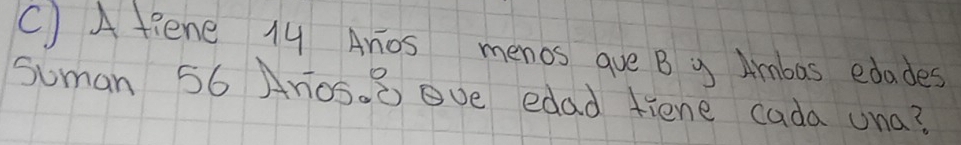 C) A tiene 14 Años menos que B y Ambas edades
suman 56 Años. ¿ Que edad tiene cada una?